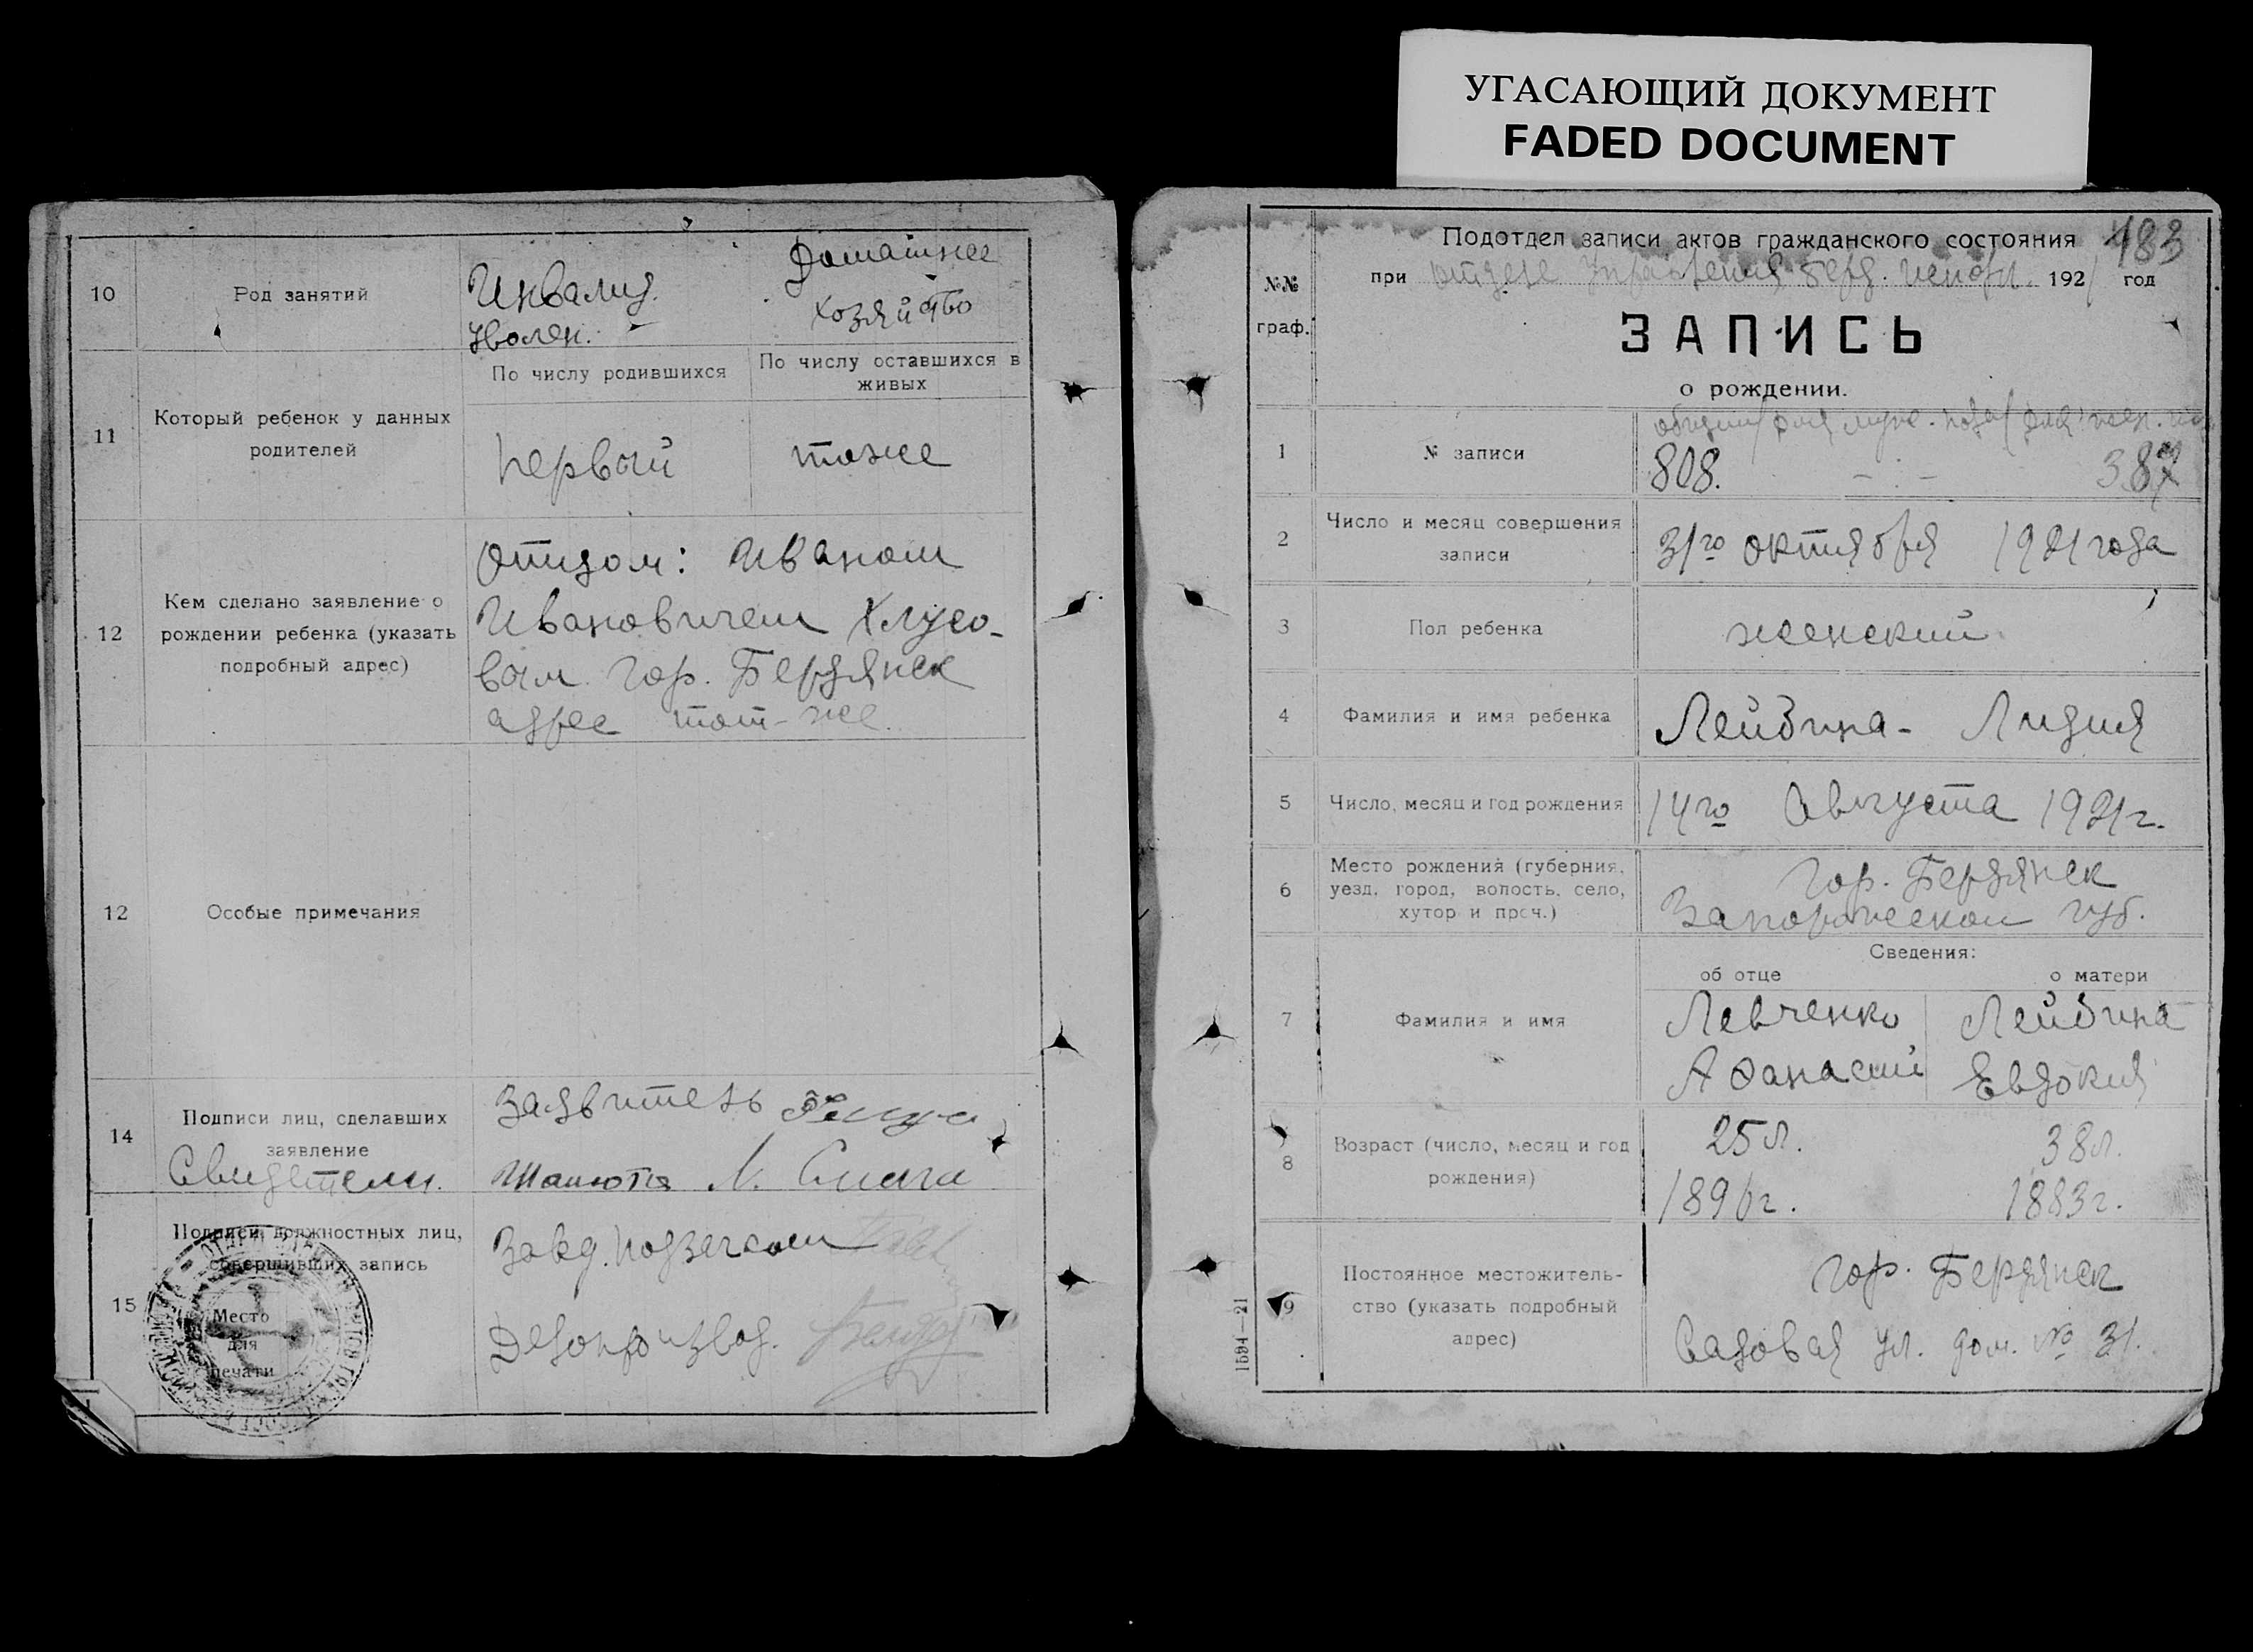 УГАСАЮЩИЙ ДОКУМЕНТ
FADED DOCUMENT
10
Род занятий
Инвалид
уволен.
Домашнее
хозяйство
11
Который ребенок у данных
родителей
По числу родившихся
По числу оставшихся в
живых
первый
тоже
12
Кем сделано заявление о
рождении ребенка (указать
подробный адрес)
Отцом: Иваном
Ивановичем Хлусо-
вым гор. Бердянск
адрес тот-же.
12
Особые примечания
14
Подписи лиц, сделавших
заявление
Свидетели.
Заявитель
15
Подписи должностных лиц,
совершивших запись
Место
для
печати
Завд. подзагсом
Делопроизвод.
483
Подотдел записи актов гражданского состояния
при отделе Управления Берд. исполк. 1921 год
№№
граф.
ЗАПИСЬ
о рождении.
1
№ записи
808. — : — 387
2
Число и месяц совершения
записи
31го октября 1921 года
3
Пол ребенка
женский
4
Фамилия и имя ребенка
Лейбина - Лидия
5
Число, месяц и год рождения
14го Августа 1921 г.
6
Место рождения (губерния,
уезд, город, волость, село,
хутор и проч.)
Гор. Бердянск
Запорожской губ.
Сведения:
об отце
о матери
7
Фамилия и имя
Левченко
Афанасий
Лейбина
Евдокия
8
Возраст (число, месяц и год
рождения)
25 л.
1896 г.
38 л.
1883 г.
9
Постоянное местожитель-
ство (указать подробный
адрес)
гор. Бердянск
Садовая ул. дом. № 31.
1594—21